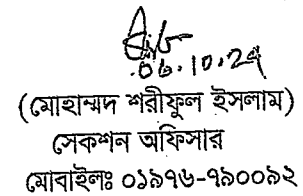 ০৬.১০.২৭
(মোহাম্মদ শরীফুল ইসলাম)
সেকশন অফিসার
মোবাইলঃ ০১৯৭৬-৭৯০০৯২